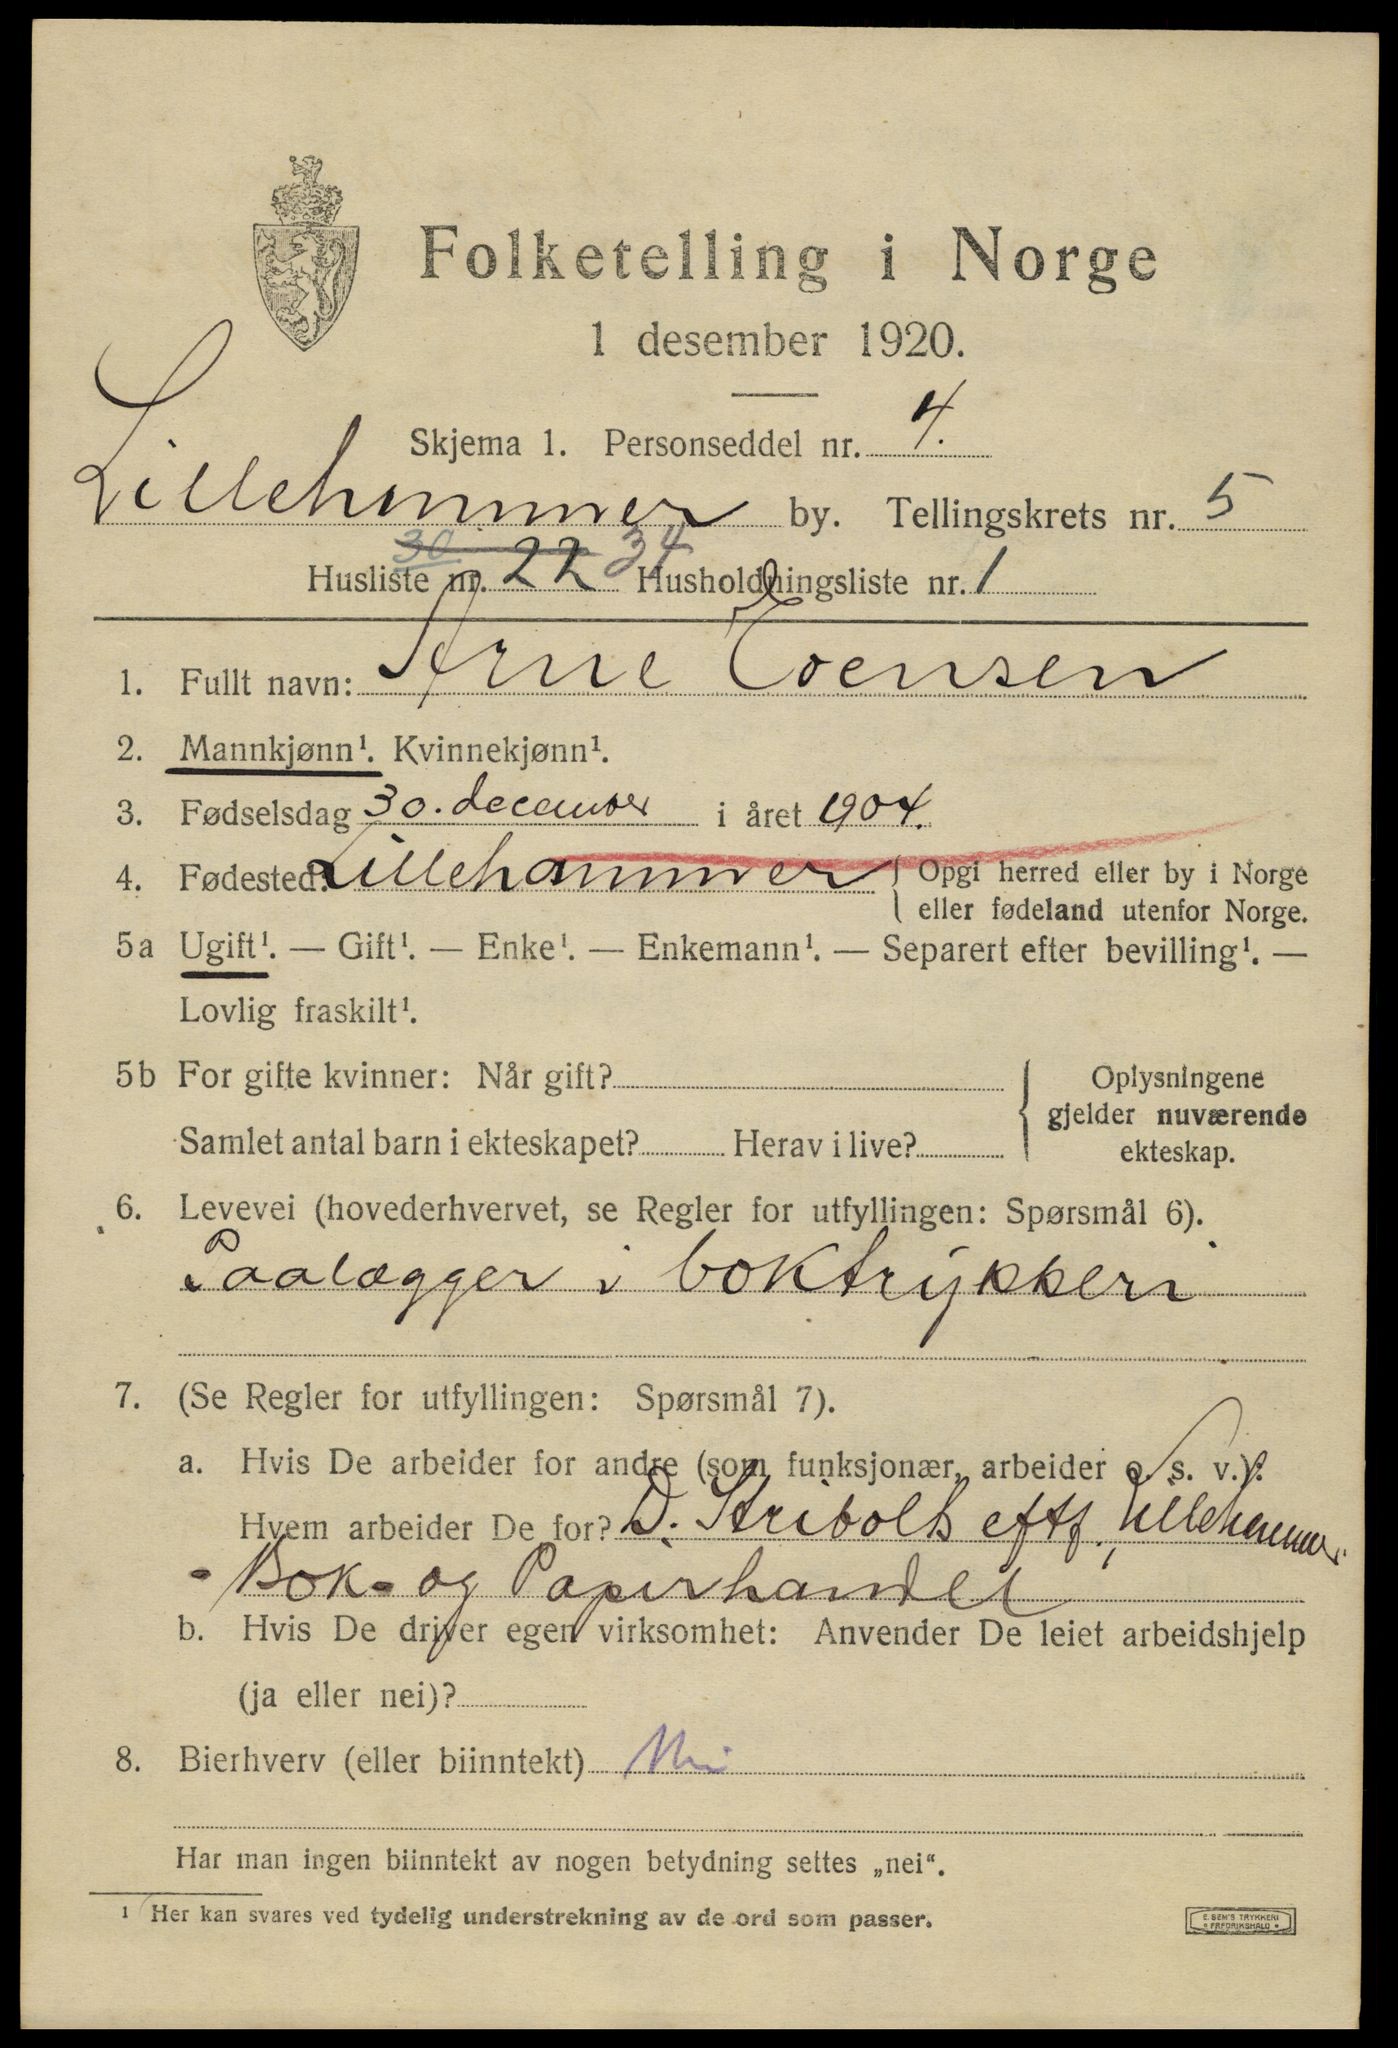 Folketelling i Norge
1 desember 1920.
Skjema 1. Personseddel nr. 4.
Lillehammer by. Tellingskrets nr. 5
Husliste nr. 30 22 34 Husholdningsliste nr. 1
1. Fullt navn: Arne Evensen
2. Mannkjønn¹. Kvinnekjønn¹.
3. Fødselsdag 30. december i året 1904.
4. Fødested: Lillehammer { Opgi herred eller by i Norge
eller fødeland utenfor Norge.
5a Ugift¹. — Gift¹. — Enke¹. — Enkemann¹. — Separert efter bevilling¹. —
Lovlig fraskilt¹.
5b For gifte kvinner: Når gift?
Samlet antal barn i ekteskapet? Herav i live?
{ Oplysningene
gjelder nuværende
ekteskap.
6. Levevei (hovederhvervet, se Regler for utfyllingen: Spørsmål 6).
Paalægger i boktrykkeri
7. (Se Regler for utfyllingen: Spørsmål 7).
a. Hvis De arbeider for andre (som funksjonær, arbeider o. s. v.):
Hvem arbeider De for? D. Stribolts eftf. Lillehammer
- Bok- og Papirhandel
b. Hvis De driver egen virksomhet: Anvender De leiet arbeidshjelp
(ja eller nei)?
8. Bierhverv (eller biinntekt) Nei
Har man ingen biinntekt av nogen betydning settes „nei“.
¹ Her kan svares ved tydelig understrekning av de ord som passer.
E. SEM'S TRYKKERI
FREDRIKSHALD